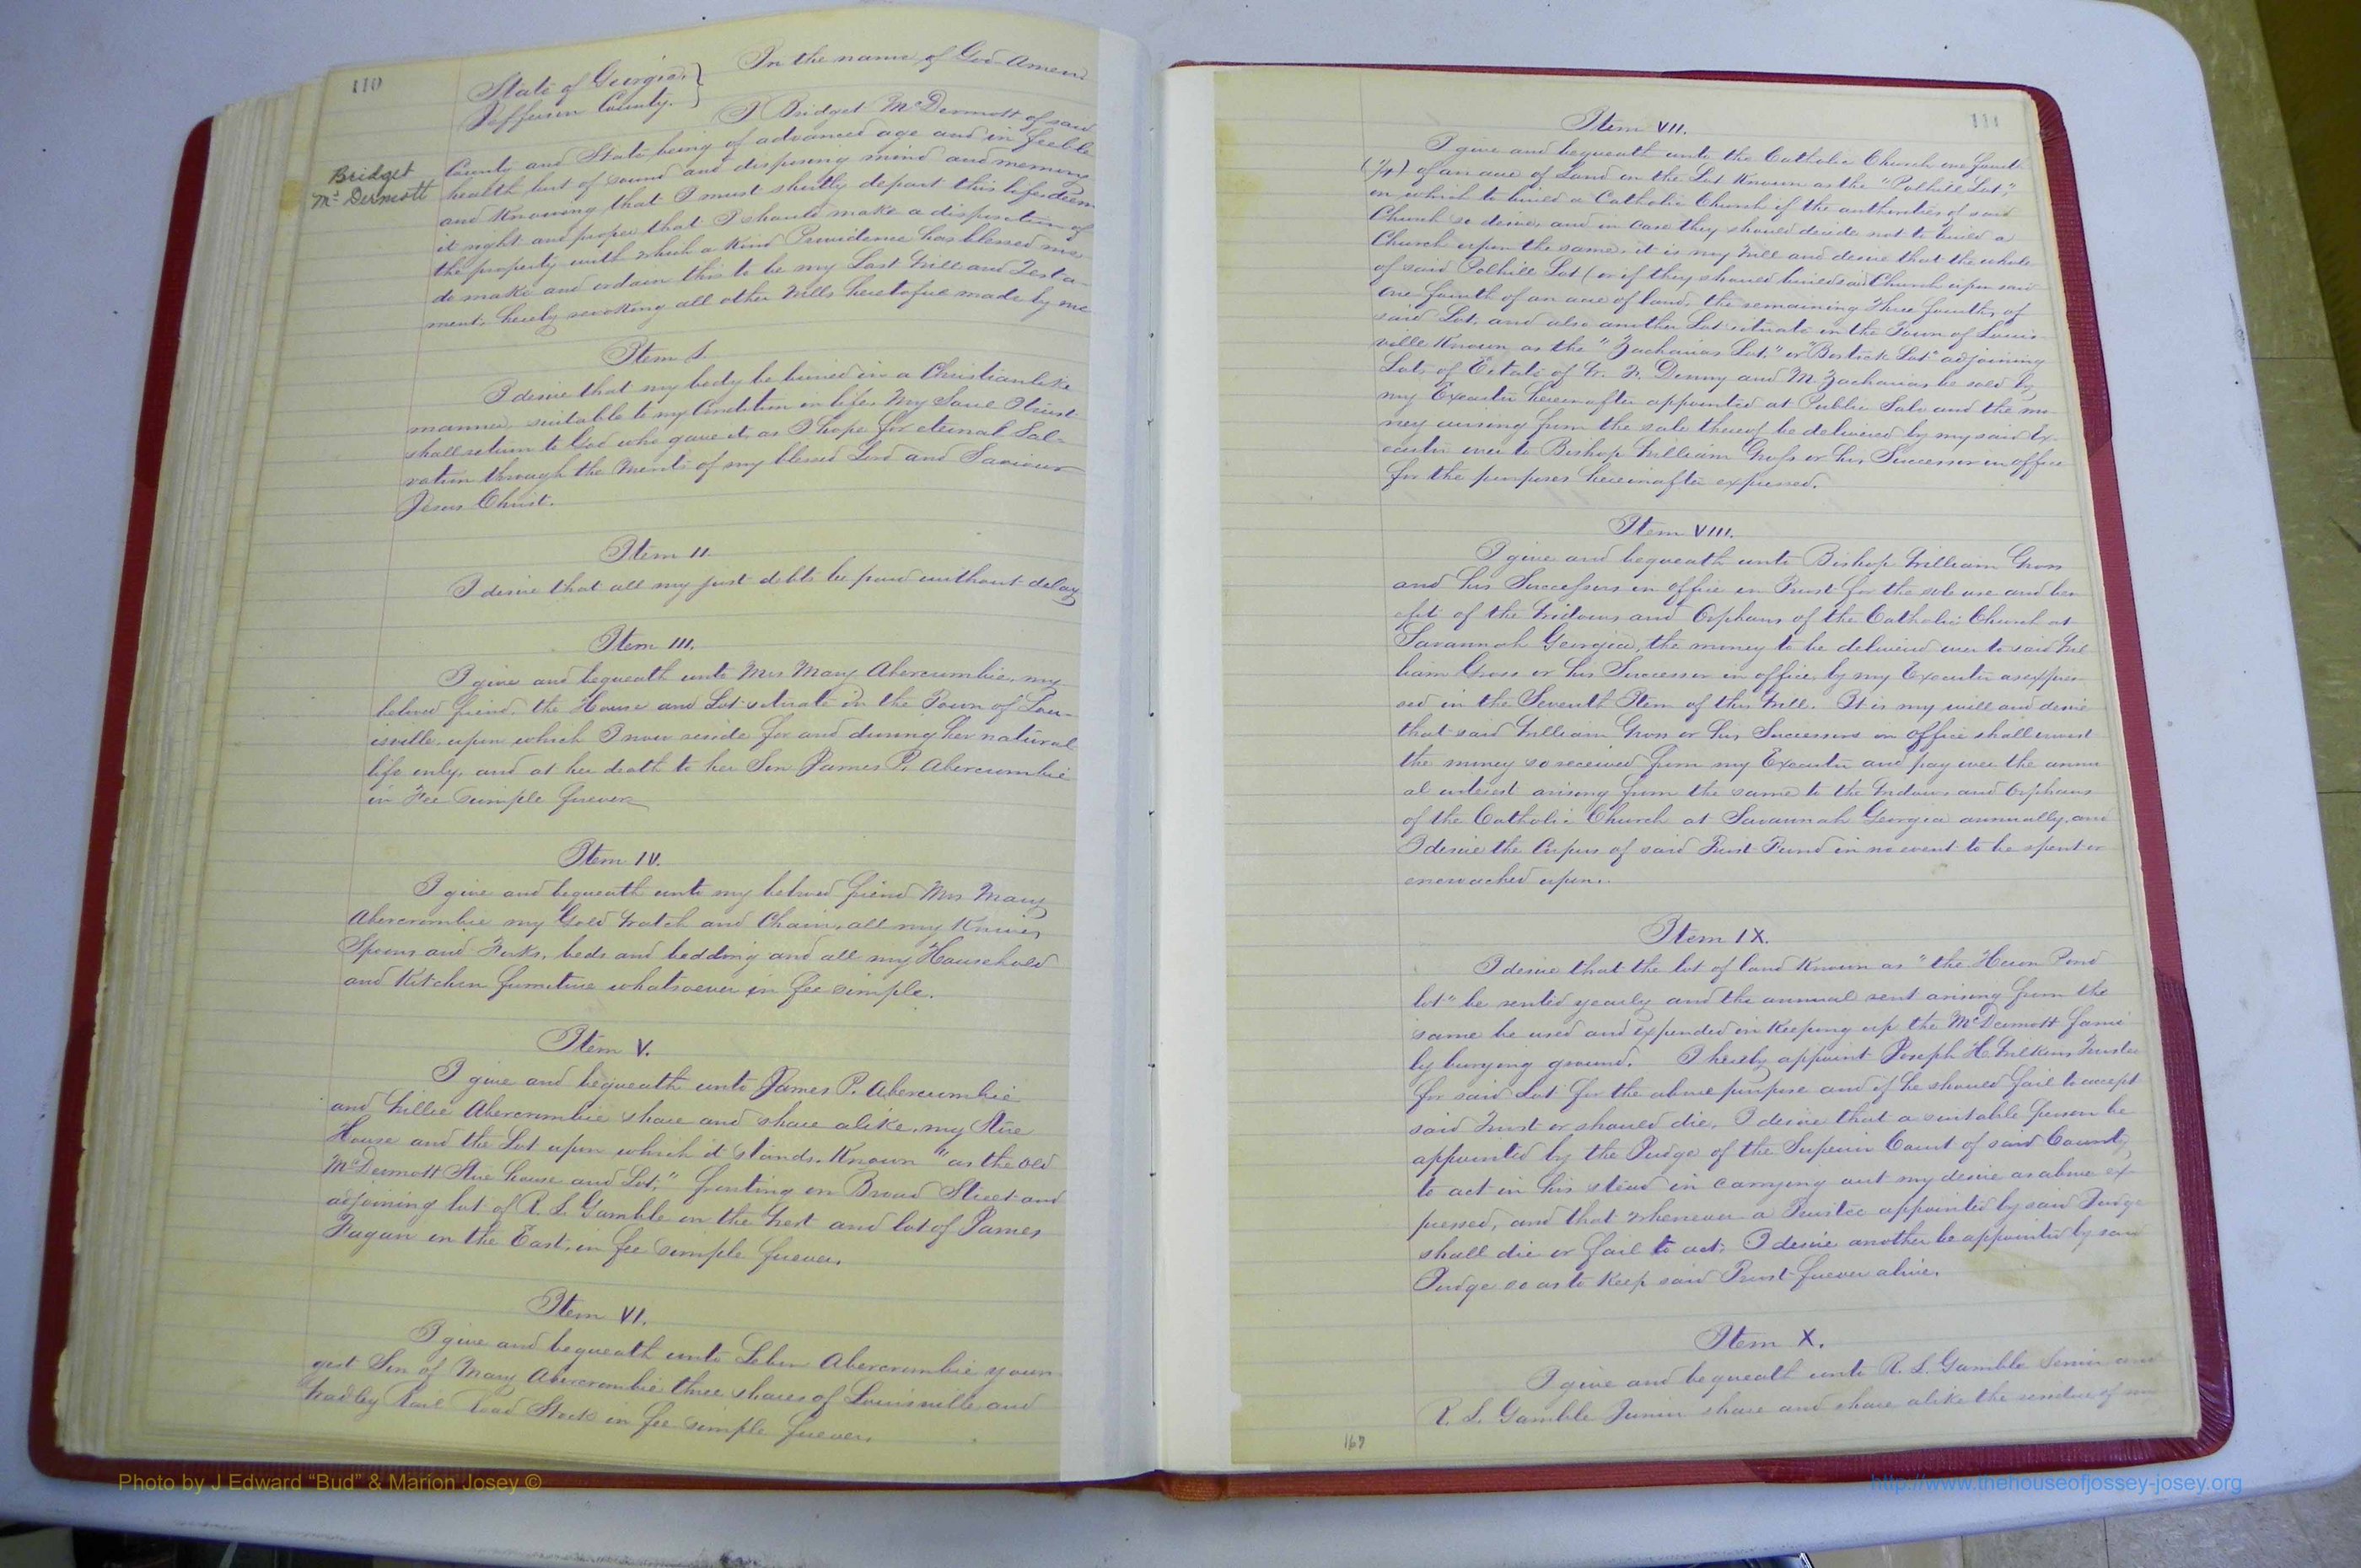 110
State of Georgia }
Jefferson County. }
In the name of God Amen
I Bridget McDermott of said
Bridget
McDermott
County and State being of advanced age and in feeble
health but of sound and disposing mind and memory
and Knowing that I must shortly depart this life, deem
it right and proper that I should make a disposition of
the property with which a Kind Providence has blessed me
do make and ordain this to be my Last Will and Testa-
ment, hereby revoking all other Wills heretofore made by me
Item I.
I desire that my body be buried in a Christianlike
manner, suitable to my Condition in life. My Soul I trust
shall return to God who gave it, as I hope for eternal Sal-
vation through the Merits of my blessed Lord and Saviour
Jesus Christ.
Item II.
I desire that all my just debts be paid without delay
Item III.
I give and bequeath unto Mrs Mary Abercrombie, my
beloved friend, the House and Lot situate in the Town of Lou-
isville, upon which I now reside for and during her natural
life only, and at her death to her Son James P. Abercrombie
in Fee Simple forever
Item IV.
I give and bequeath unto my beloved friend Mrs Mary
Abercrombie my Gold Watch and Chain, all my Knives
Spoons and Forks, beds and bedding and all my Household
and Kitchen furniture whatsoever in fee simple.
Item V.
I give and bequeath unto James P. Abercrombie
and Willie Abercrombie share and share alike, my Store
House and the Lot upon which it stands. Known "as the old
McDermott Store house and Lot," fronting on Broad Street and
adjoining lot of R. L. Gamble on the West and lot of James
Fagan on the East, in fee simple forever.
Item VI.
I give and bequeath unto Leben Abercrombie youn
gest Son of Mary Abercrombie three shares of Louisville and
Wadley Rail Road Stock in fee simple forever.
111
Item VII.
I give and bequeath unto the Catholic Church one fourth
(1/4) of an acre of Land on the Lot Known as the "Polhill Lot,"
on which to build a Catholic Church if the authorities of said
Church so desire, and in case they should decide not to build a
Church upon the same, it is my Will and desire that the whole
of said Polhill Lot (or if they should build said Church upon said
One fourth of an acre of land, the remaining Three fourths of
said Lot, and also another Lot situate in the Town of Louis-
ville Known as the "Zacharias Lot," or "Bostick Lot" adjoining
Lots of Estate of W. W. Denny and M. Zacharias, be sold by
my Executor hereinafter appointed at Public Sale and the mo
ney arising from the sale thereof be delivered by my said Ex-
ecutor over to Bishop William Gross or his Successor in office
for the purposes hereinafter expressed.
Item VIII.
I give and bequeath unto Bishop William Gross
and his Successors in office in Trust for the sole use and ben
efit of the Widows and Orphans of the Catholic Church at
Savannah Georgia, the money to be delivered over to said Wil
liam Gross or his Successor in office, by my Executor as expres
sed in the Seventh Item of this Will. It is my will and desire
that said William Gross or his Successors in office shall invest
the money so received from my Executor and pay over the annu
al interest arising from the same to the Widows and Orphans
of the Catholic Church at Savannah Georgia annually, and
I desire the Corpus of said Trust Fund in no event to be spent or
encroached upon.
Item IX.
I desire that the lot of land Known as "the Heron Pond
lot" be rented yearly and the annual rent arising from the
same be used and expended in Keeping up the McDermott fami
ly burying ground. I hereby appoint Joseph H. Wilkins Trustee
for said Lot for the above purpose and if he should fail to accept
said Trust or should die, I desire that a suitable person be
appointed by the Judge of the Superior Court of said County
to act in his stead in carrying out my desire as above ex-
pressed, and that whenever a Trustee appointed by said Judge
shall die or fail to act, I desire another be appointed by said
Judge so as to Keep said Trust forever alive.
Item X.
I give and bequeath unto R. L. Gamble Senior and
R. L. Gamble Junior share and share alike the residue of my
167
Photo by J Edward "Bud" & Marion Josey ©
http://www.thehouseofjossey-josey.org